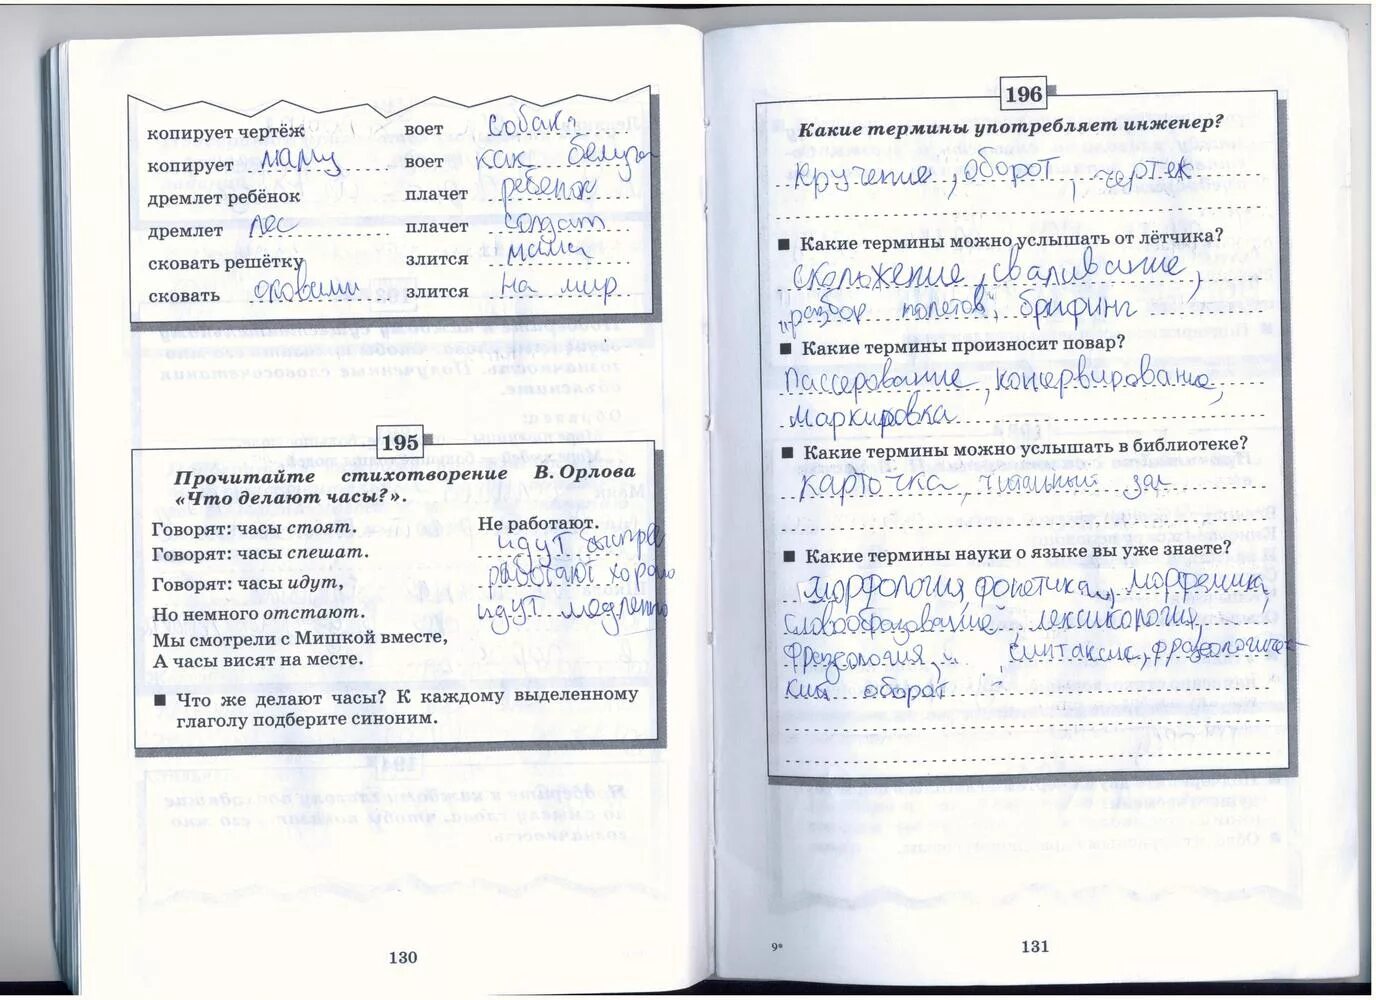 копирует чертёж воет собака
копирует маму воет как белуга
дремлет ребёнок плачет ребенок
дремлет лес плачет солдат
сковать решётку злится мама
сковать оковами злится на мир
195
Прочитайте стихотворение В. Орлова
«Что делают часы?».
Говорят: часы стоят. Не работают.
Говорят: часы спешат. идут быстрее
Говорят: часы идут, работают хорошо
Но немного отстают. идут медленно
Мы смотрели с Мишкой вместе,
А часы висят на месте.
■ Что же делают часы? К каждому выделенному
глаголу подберите синоним.
130
196
Какие термины употребляет инженер?
Кручение, оборот, чертеж
■ Какие термины можно услышать от лётчика?
скольжение, сваливание,
"разбор полетов", брифинг
■ Какие термины произносит повар?
Пассерование, консервирование,
маркировка
■ Какие термины можно услышать в библиотеке?
карточка, читальный зал
■ Какие термины науки о языке вы уже знаете?
Морфология фонетика, морфемика,
словообразование лексикология,
фразеология, синтаксис, фразеологичес-
кий оборот
9*
131